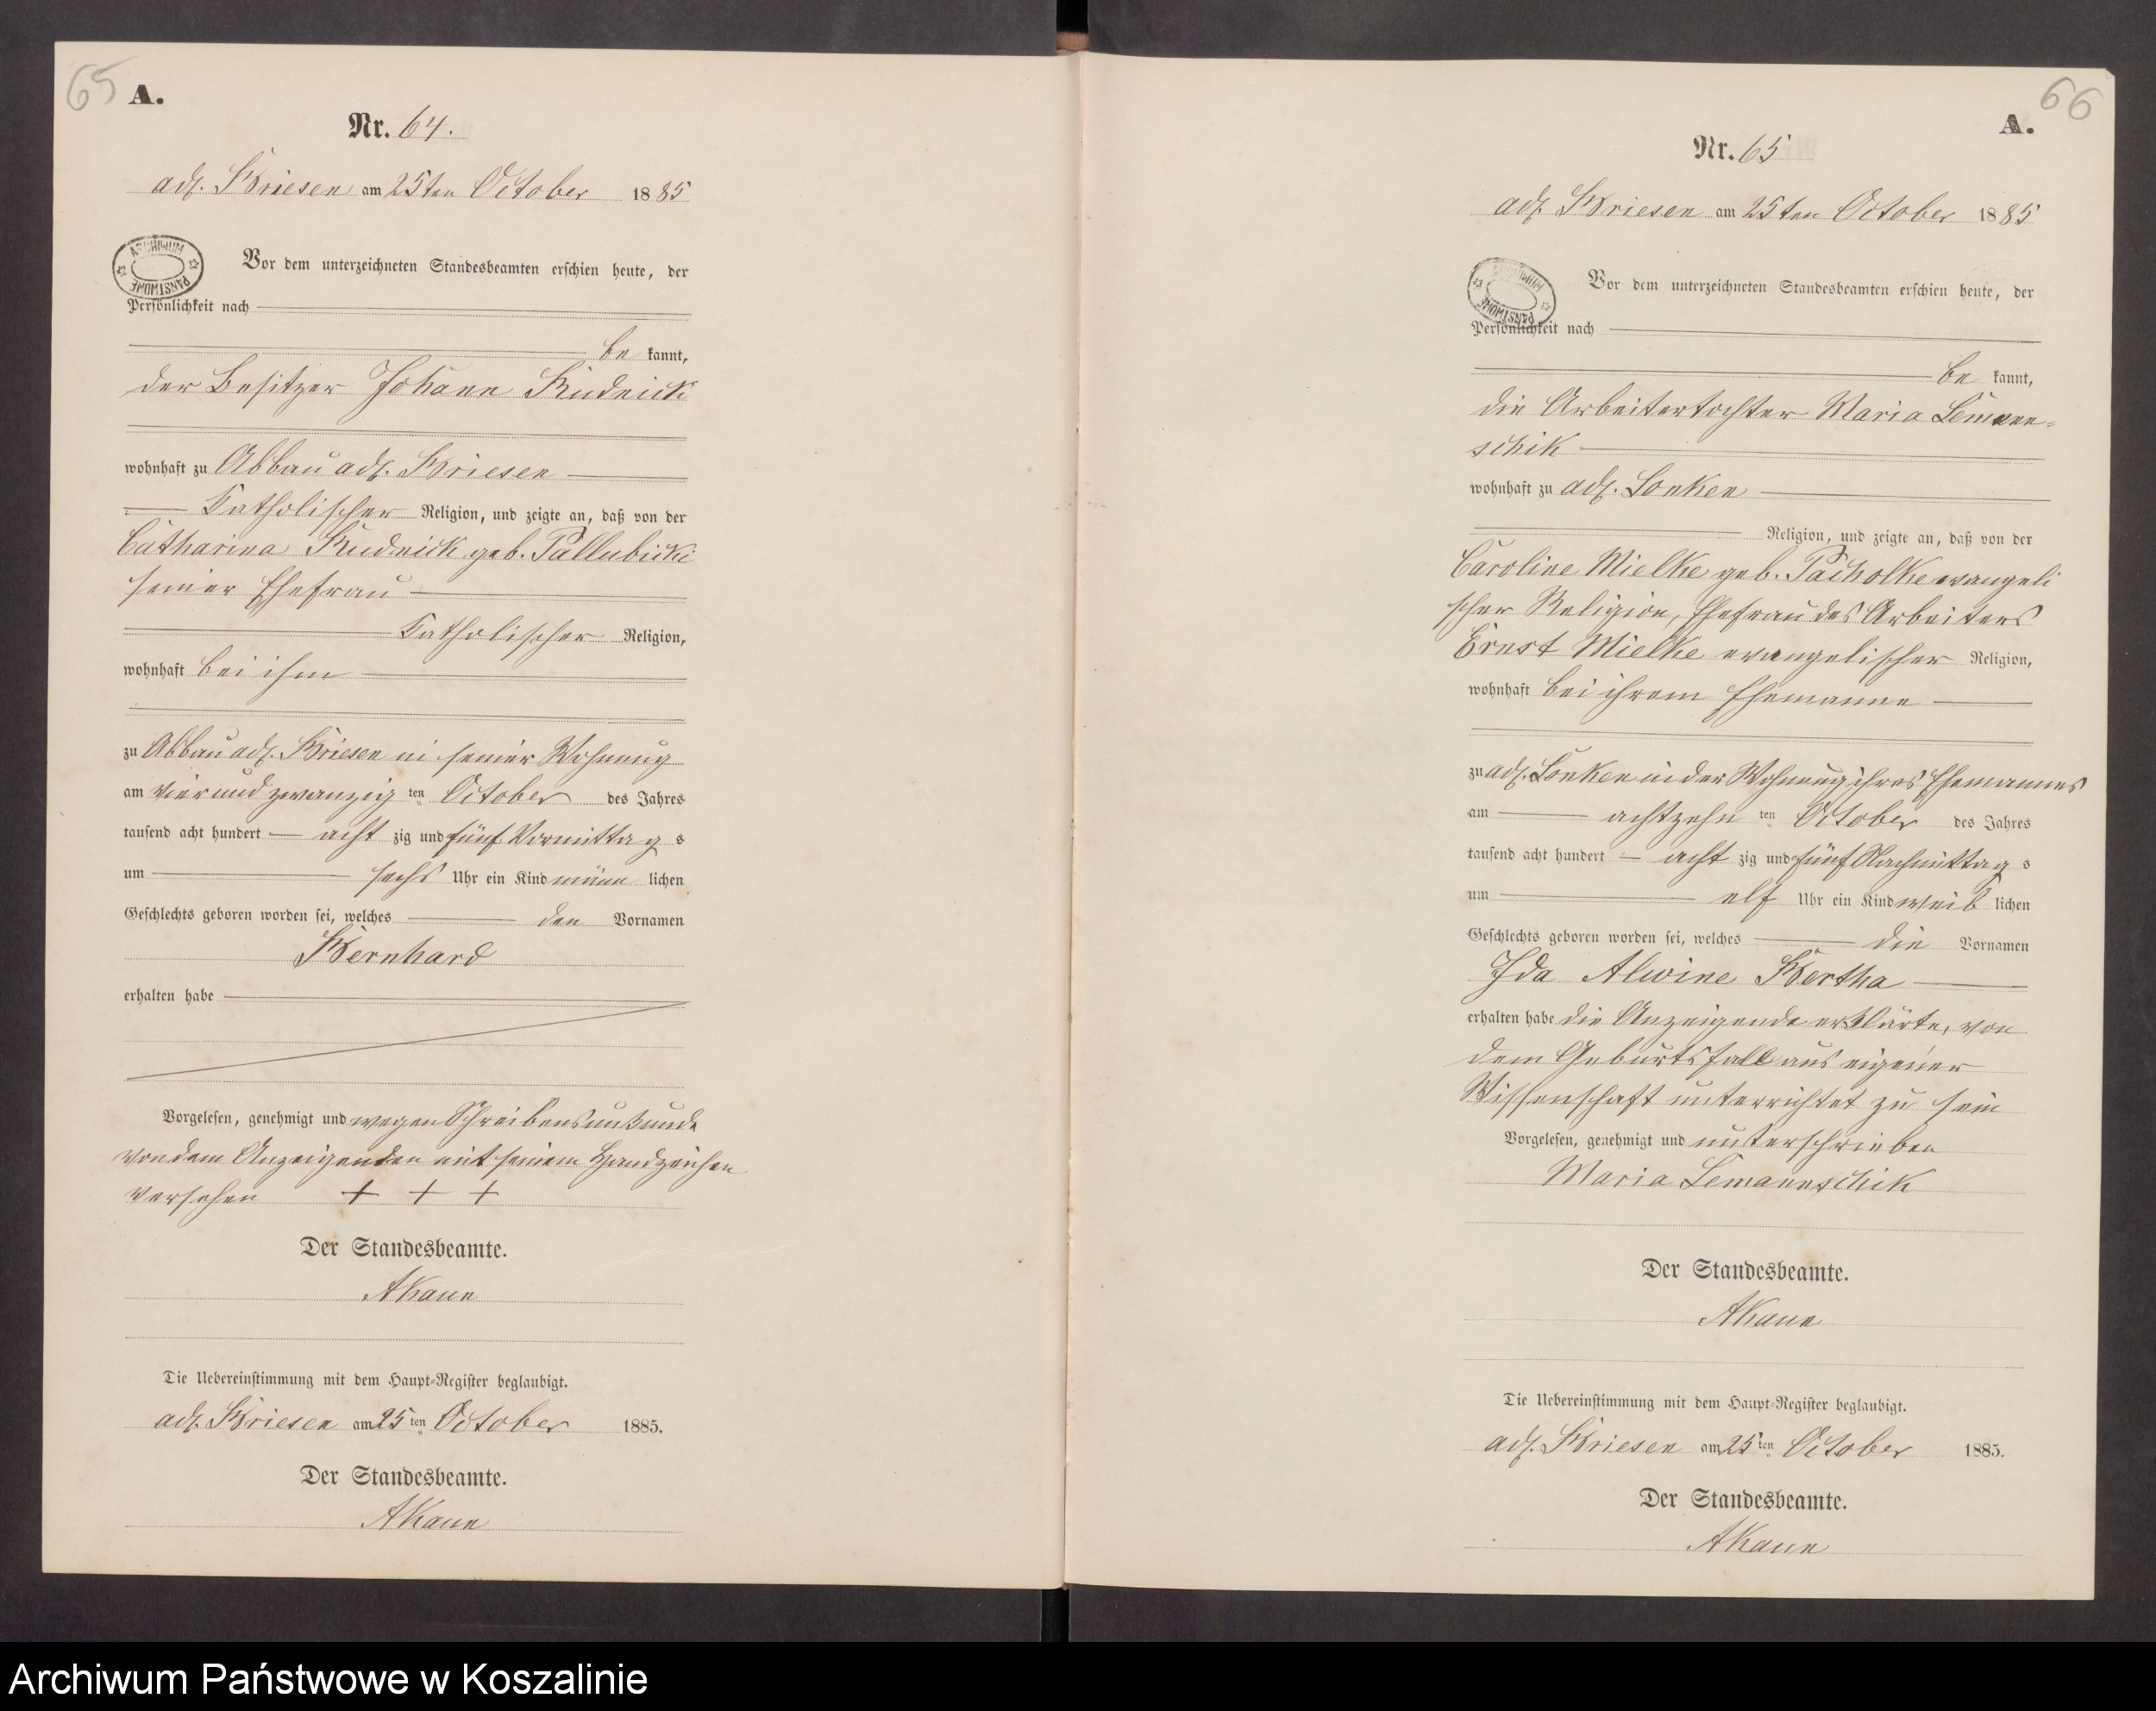 65
A.
Nr. 64.
adl. Briesen am 25ten October 1885
ARCHIWUM PAŃSTWOWE
Vor dem unterzeichneten Standesbeamten erschien heute, der
Persönlichkeit nach
be kannt,
der Besitzer Johann Rudnick
wohnhaft zu Abbau adl. Briesen
Katholischer Religion, und zeigte an, daß von der
Catharina Rudnick geb. Pallubicki
seiner Ehefrau
Katholischer Religion,
wohnhaft bei ihm
zu Abbau adl. Briesen in seiner Wohnung
am vier und zwanzig ten October des Jahres
tausend acht hundert acht zig und fünf Vormittag s
um sechs Uhr ein Kind männ lichen
Geschlechts geboren worden sei, welches den Vornamen
Bernhard
erhalten habe
Vorgelesen, genehmigt und wegen Schreibensunkunde
von dem Anzeigenden mit seinem Handzeichen
versehen + + +
Der Standesbeamte.
AKaun
Die Uebereinstimmung mit dem Haupt-Register beglaubigt.
adl. Briesen am 25 ten October 1885.
Der Standesbeamte.
AKaun
66
A.
Nr. 65
adl. Briesen am 25ten October 1885
ARCHIWUM PAŃSTWOWE
Vor dem unterzeichneten Standesbeamten erschien heute, der
Persönlichkeit nach
be kannt,
die Arbeitertochter Maria Lemann-
schik
wohnhaft zu adl. Lonken
Religion, und zeigte an, daß von der
Caroline Mielke geb. Pacholke evangeli
scher Religion, Ehefrau des Arbeiters
Ernst Mielke evangelischer Religion,
wohnhaft bei ihrem Ehemanne
zu adl. Lonken in der Wohnung ihres Ehemannes
am achtzehn ten October des Jahres
tausend acht hundert acht zig und fünf Nachmittag s
um elf Uhr ein Kind weib lichen
Geschlechts geboren worden sei, welches die Vornamen
Ida Alwine Bertha
erhalten habe die Anzeigende erklärte, von
dem Geburtsfall aus eigener
Wissenschaft unterrichtet zu sein
Vorgelesen, genehmigt und unterschrieben
Maria Lemannschik
Der Standesbeamte.
AKaun
Die Uebereinstimmung mit dem Haupt-Register beglaubigt.
adl. Briesen am 25 ten October 1885.
Der Standesbeamte.
AKaun
Archiwum Państwowe w Koszalinie